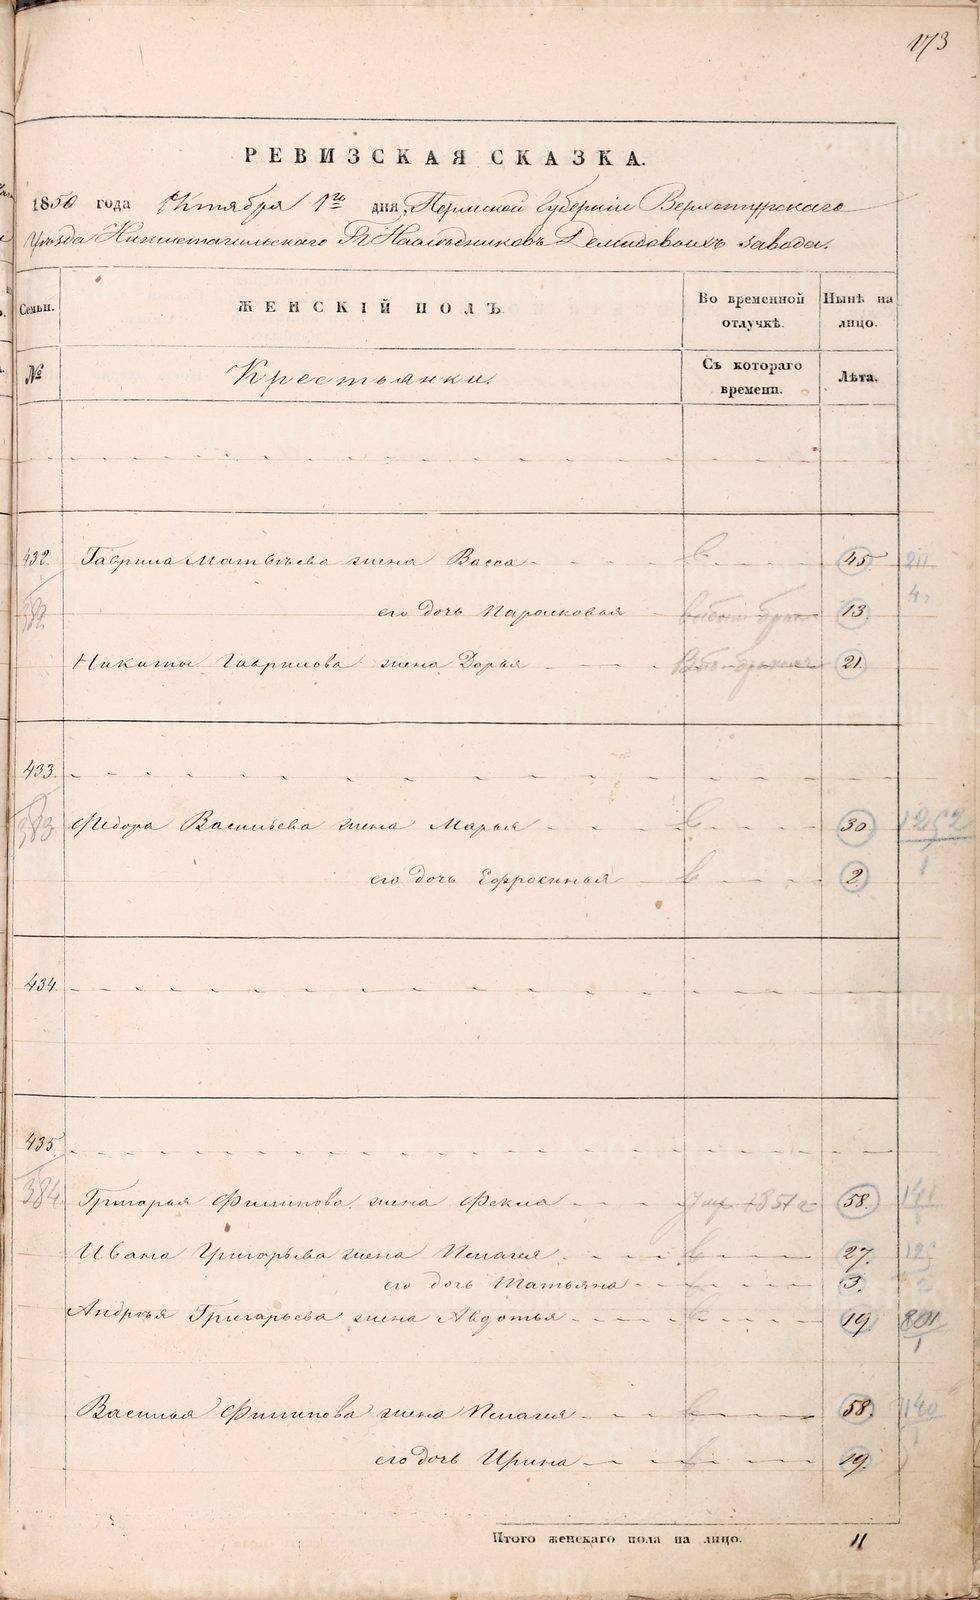 173
РЕВИЗСКАЯ СКАЗКА.
1850 года Октября 1го дня, Пермской Губернии Верхотурского
Уезда Нижнетагильского Гг Наследников Демидовых завода.
Семьи. ЖЕНСКІЙ ПОЛЪ. Во временной отлучкѣ. Нынѣ на лицо.
№ Крестьянки. Съ котораго времени. Лѣта.
432. Гаврила Матвѣева жена Васса 45
382 его дочь Парасковья 13
Никиты Гаврилова жена Дарья 21.
433.
383 Федора Васильева жена Марья 30 1252
1
его дочь Ефросинья 2
434.
435.
384 Григорья Филипова жена Фекла Умр 1851 г 58. 141
Ивана Григорьева жена Пелагея 27.
его дочь Татьяна 3.
Андрѣя Григорьева жена Авдотья 19 801
1
Василья Филипова жена Пелагея 58. 140
1
его дочь Ирина 19.
Итого женскаго пола на лицо. 11
METRIKI.GASO-URAL.RU